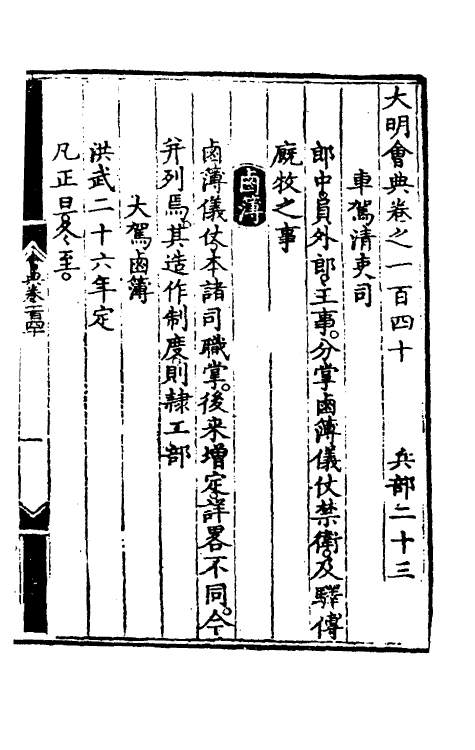 大明會典卷之一百四十 兵部二十三
車駕清吏司
郎中。員外郎。主事。分掌鹵簿儀仗禁衛。及驛傳
廐牧之事
鹵簿
鹵簿儀仗。本諸司職掌。後来增定。詳畧不同。今
并列焉。其造作制度。則隸工部
大駕鹵簿
洪武二十六年定
凡正旦。冬至。
會典卷一百四十
一